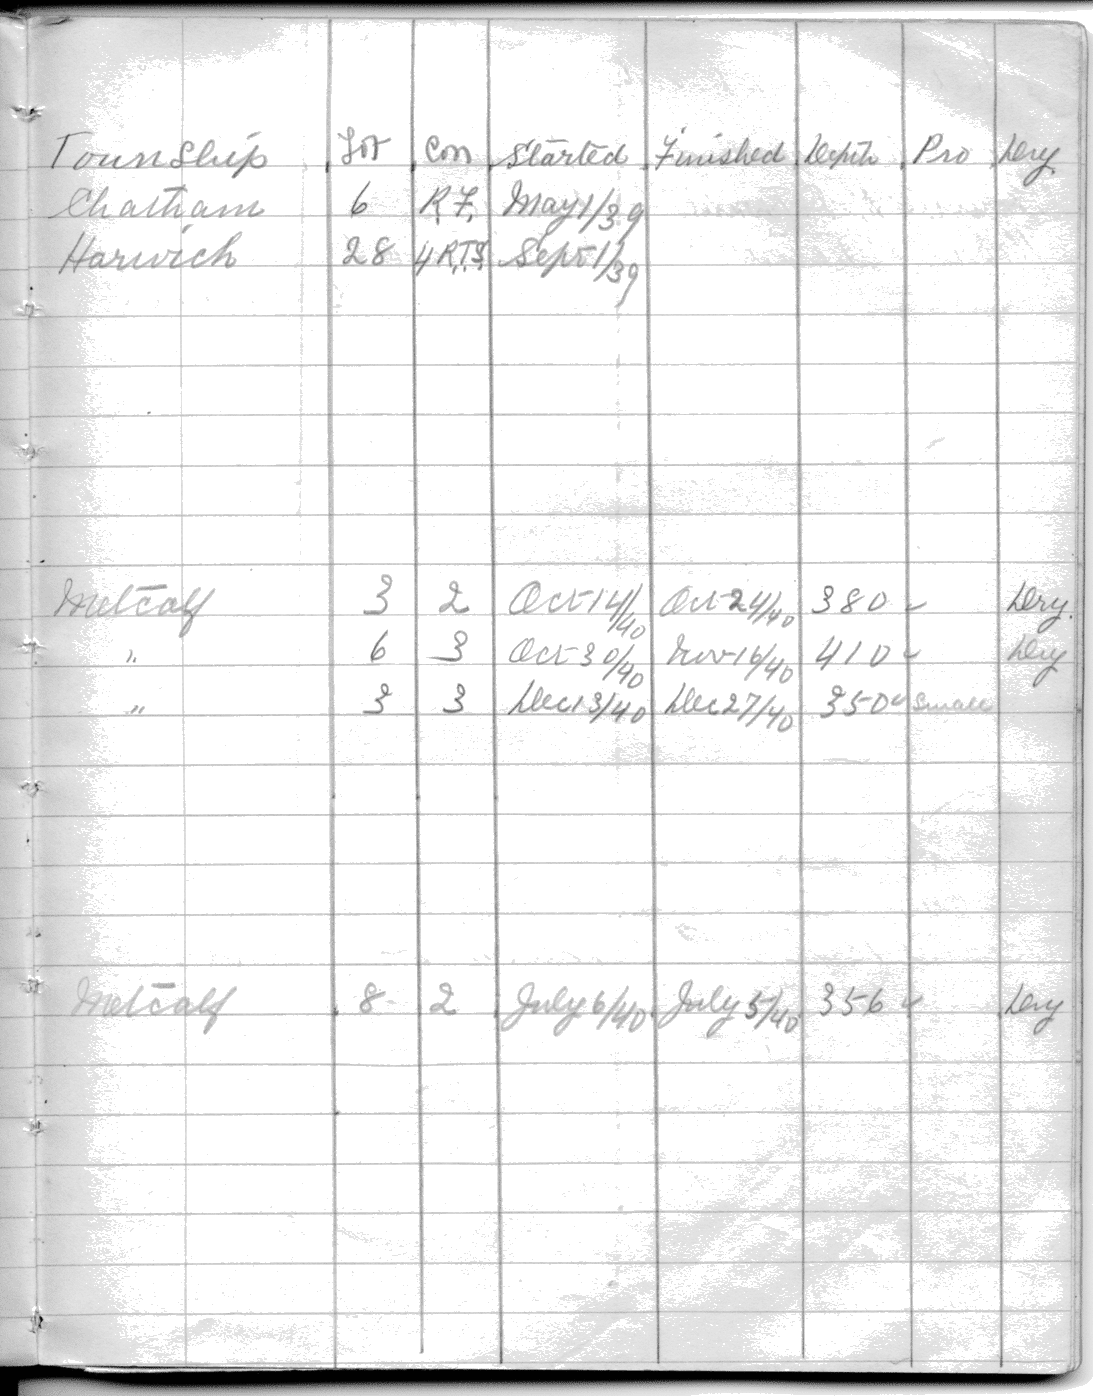 Township Lot Con Started Finished Depth Pro Dry
Chatham 6 R.F. May 1/39
Harwich 28 4 R.T.S. Sept 1/39
Metcalf 3 2 Oct 14/40 Oct 24/40 380 ✓ Dry.
" 6 3 Oct 30/40 Nov 16/40 410 ✓ Dry
" 3 3 Dec 13/40 Dec 27/40 350 ✓ Small
Metcalf 8 2 July 6/40 July 5/40 356 ✓ Dry